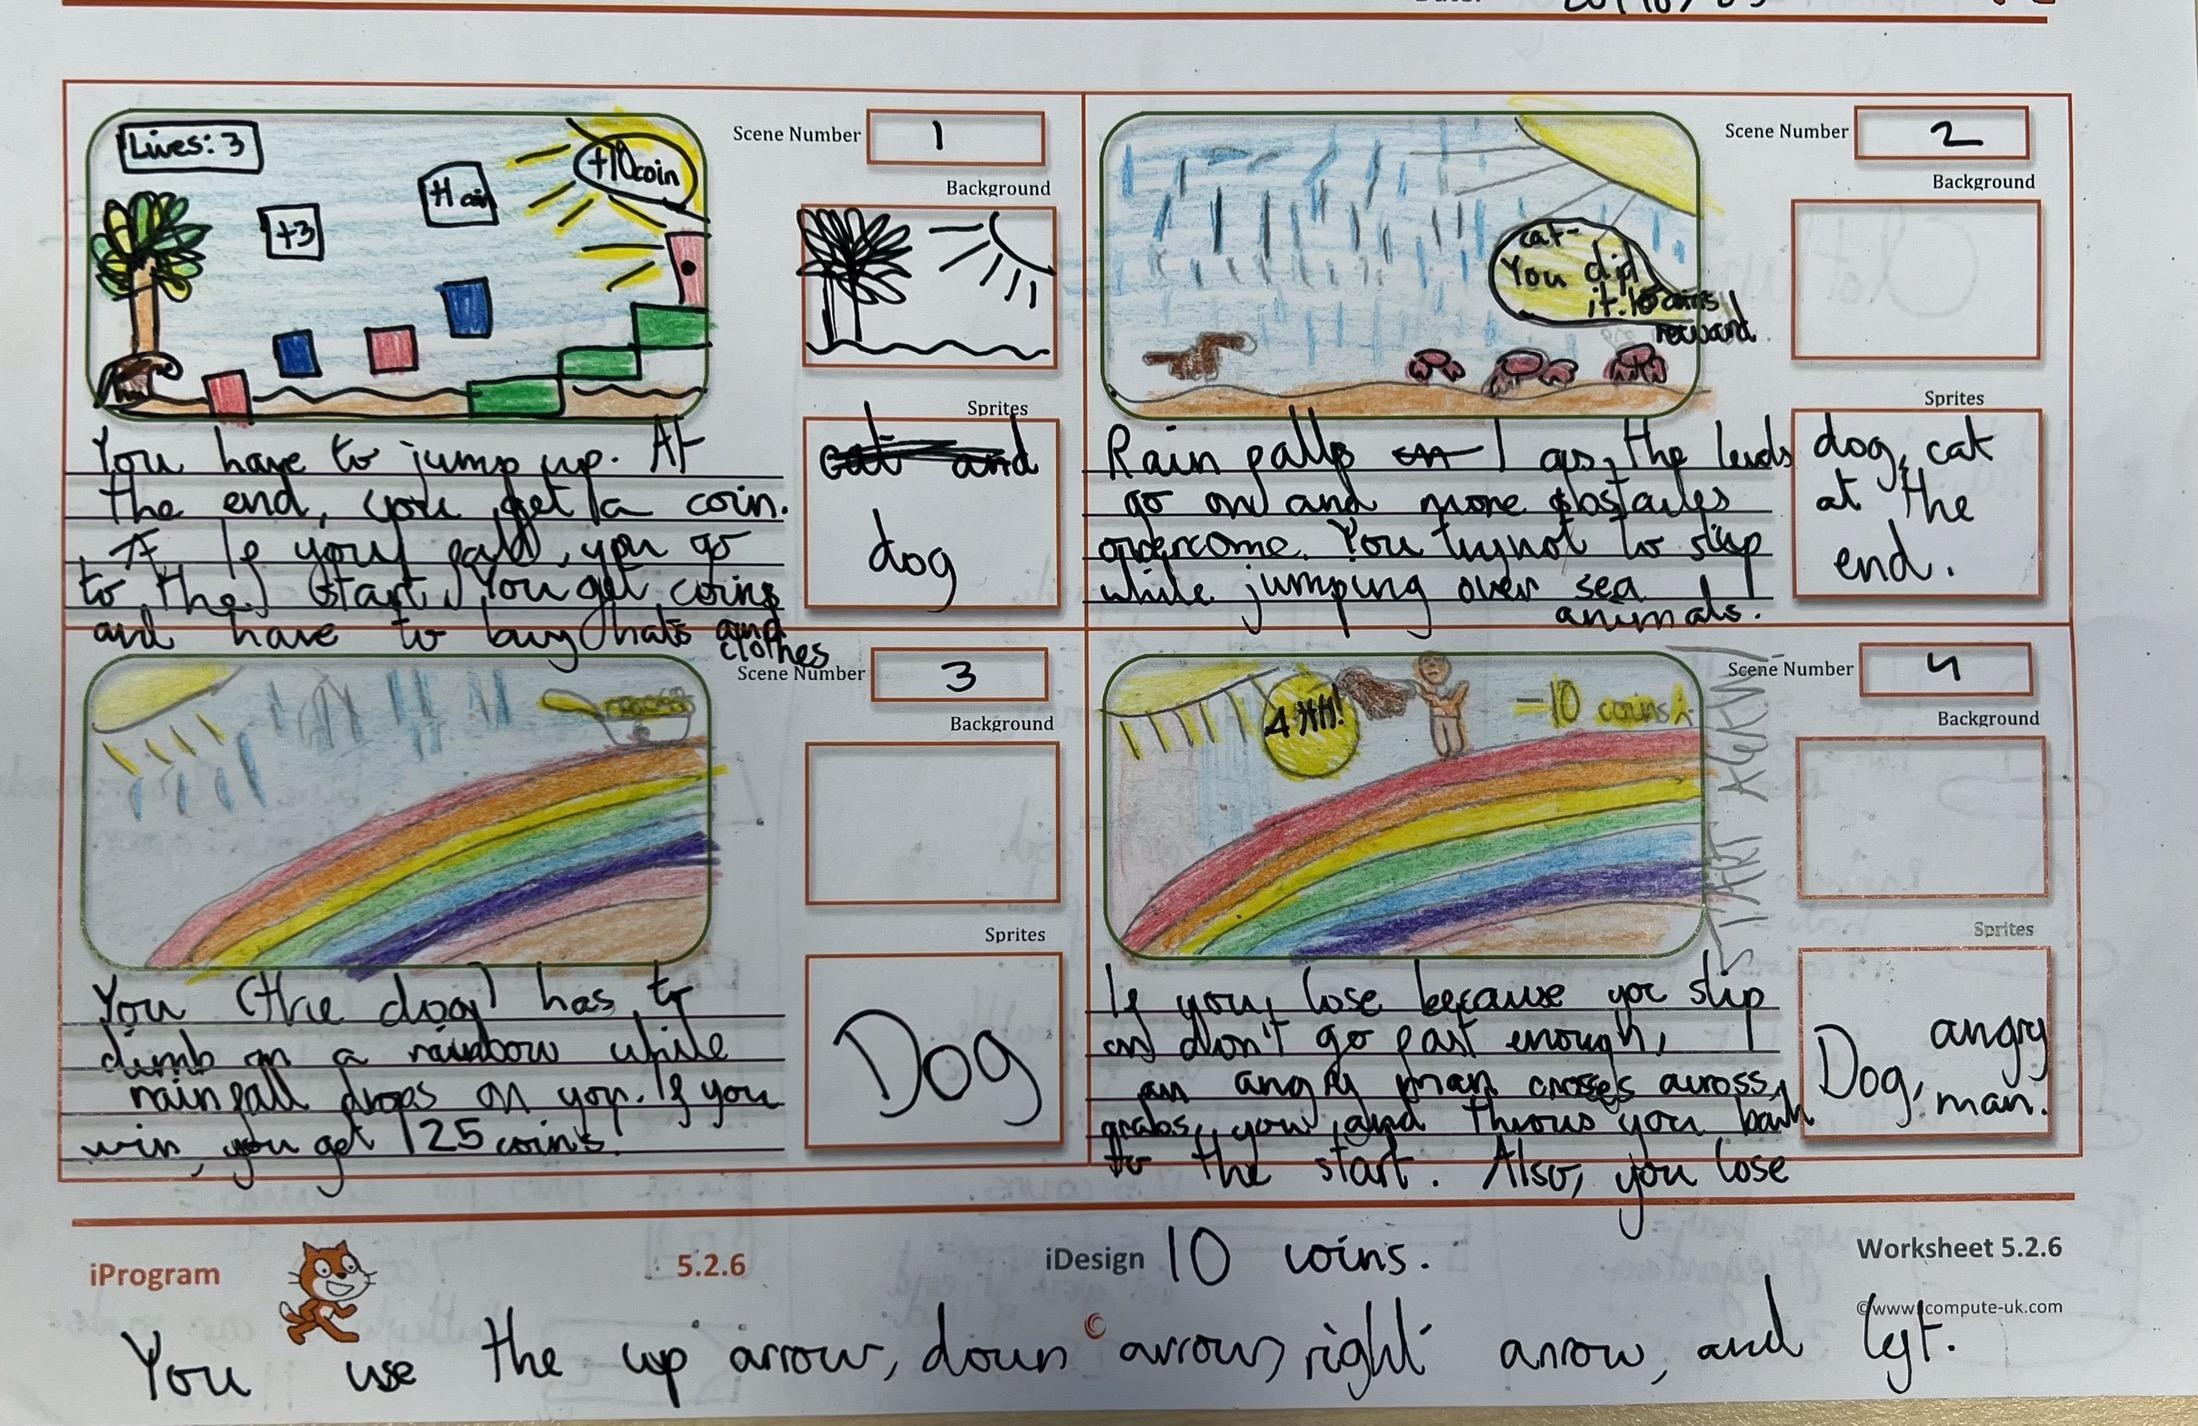 Lives: 3
+3
+1 coin
+10 coin
Scene Number 1
Background
Sprites
dog
You have to jump up. At
the end, you get a coin.
If you fall, you go
to the start. You get coins
and have to buy hats and
clothes
Scene Number 2
Background
Sprites
cat-
You did
it. 10 coins
reward.
dog, cat
at the
end.
Rain falls as the levels
go on and more obstacles
overcome. You try not to slip
while jumping over sea
animals.
Scene Number 3
Background
Sprites
Dog
You (the dog) has to
climb on a rainbow while
rainfall drops on you. If you
win, you get 125 coins.
Scene Number 4
Background
Sprites
-10 coins
START AGAIN
Dog, angry
man.
If you lose because you slip
or don't go fast enough,
an angry man crosses across,
grabs you and throws you back
to the start. Also, you lose
10 coins.
iProgram 5.2.6 iDesign Worksheet 5.2.6
©www.icompute-uk.com
You use the up arrow, down arrow, right arrow, and left.